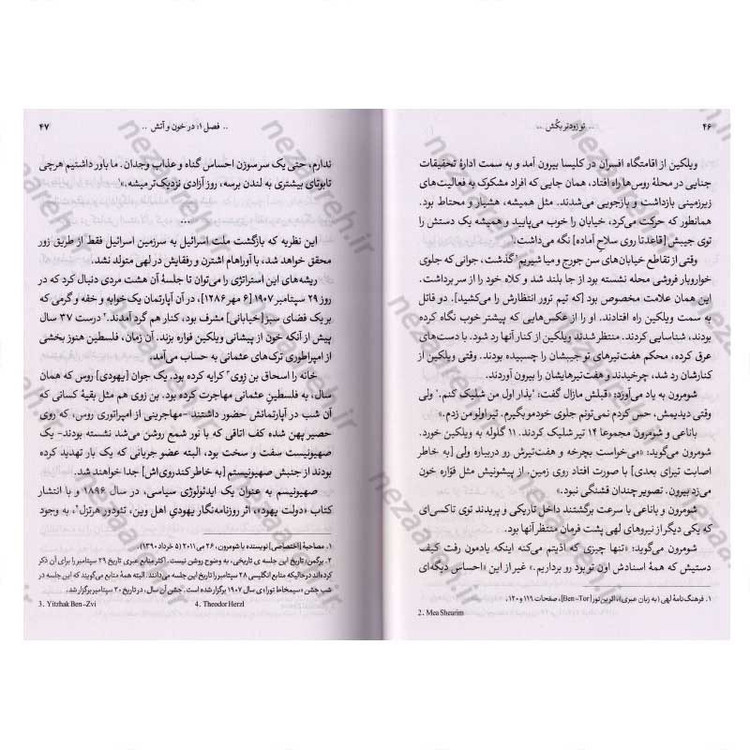 ۴۶
.. تو زودتر بکُش ..
ویلکین از اقامتگاه افسران در کلیسا بیرون آمد و به سمت ادارهٔ تحقیقات
جنایی در محلهٔ روس‌ها راه افتاد، همان جایی که افراد مشکوک به فعالیت‌های
زیرزمینی بازداشت و بازجویی می‌شدند. مثل همیشه، هشیار و محتاط بود.
همانطور که حرکت می‌کرد، خیابان را خوب می‌پایید و همیشه یک دستش را
توی جیبش [قاعدتا روی سلاح آماده] نگه می‌داشت.
وقتی از تقاطع خیابان‌های سن جورج و میا شیریم گذشت، جوانی که جلوی
خواربار فروشی محله نشسته بود از جا بلند شد و کلاه خود را از سر برداشت.
این همان علامت مخصوص بود [که تیم ترور انتظارش را می‌کشید]. دو قاتل
به سمت ویلکین راه افتادند. او را از عکس‌هایی که پیشتر خوب نگاه کرده
بودند، شناسایی کردند. منتظر شدند ویلکین از کنار آنها رد شود. با دست‌های
عرق کرده، محکم هفت‌تیرهای تو جیبشان را چسبیده بودند. وقتی ویلکین از
کنارشان رد شد، چرخیدند و هفت‌تیرهایشان را بیرون آوردند.
شومرون به یاد می‌آورد: «قبلش مازال گفت، 'بذار اول من شلیک کنم.' ولی
وقتی دیدیمش، حس کردم نمی‌تونم جلوی خودمو بگیرم. تیر اولو من زدم.»
باناعی و شومرون مجموعا ۱۴ تیر شلیک کردند. ۱۱ گلوله به ویلکین خورد.
شومرون می‌گوید: «می‌خواست بچرخه و هفت‌تیرش رو دربیاره ولی [به خاطر
اصابت تیرای بعدی] با صورت افتاد روی زمین. از پیشونیش مثل فوّاره خون
می‌زد بیرون. تصویر چندان قشنگی نبود.»
شومرون و باناعی با سرعت برگشتند داخل تاریکی و پریدند توی تاکسی‌ای
که یکی دیگر از نیروهای لهی پشت فرمان منتظر آنها بود.
شومرون می‌گوید: «تنها چیزی که اذیتم می‌کنه اینکه یادمون رفت کیف
دستیش که همهٔ اسنادش اون تو بود رو برداریم.» غیر از این «احساس دیگه‌ای
۱. فرهنگ‌نامهٔ لهی (به زبان عبری)، اثر بن تور [Ben-Tor]، صفحات ۱۱۹ و ۱۲۰.
2. Mea Shearim
.. فصل ۱: در خون و آتش ..
۴۷
ندارم، حتی یک سر سوزن احساس گناه و عذاب وجدان. ما باور داشتیم هرچی
تابوتای بیشتری به لندن برسه، روز آزادی نزدیک‌تر میشه.»
...
این نظریه که بازگشت ملت اسرائیل به سرزمین اسرائیل فقط از طریق زور
محقق خواهد شد، با آوراهام اشترن و رفقایش در لهی متولد نشد.
ریشه‌های این استراتژی را می‌توان تا جلسهٔ آن هشت مردی دنبال کرد که در
روز ۲۹ سپتامبر ۱۹۰۷ [۶ مهر ۱۲۸۶]، در آن آپارتمان یک‌خوابه و خفه و گرمی که
بر یک فضای سبز [خیابانی] مشرف بود، کنار هم گرد آمدند. درست ۳۷ سال
پیش از آنکه خون از پیشانی ویلکین فواره بزند. آن زمان، فلسطین هنوز بخشی
از امپراطوری ترک‌های عثمانی به حساب می‌آمد.
خانه را اسحاق بن زوی کرایه کرده بود. یک جوان [یهودی] روس که همان
سال، به فلسطین عثمانی مهاجرت کرده بود. بن زوی هم مثل بقیهٔ کسانی که
آن شب در آپارتمانش حضور داشتند -مهاجرینی از امپراتوری روس، که روی
حصیر پهن شده کف اتاقی که با نور شمع روشن می‌شد نشسته بودند- یک
صهیونیست سفت و سخت بود، البته عضو جریانی که یک بار تهدید کرده
بودند از جنبش صهیونیستم [به خاطر کندروی‌اش] جدا خواهند شد.
صهیونیسم به عنوان یک ایدئولوژی سیاسی، در سال ۱۸۹۶ و با انتشار
کتاب «دولت یهود»، اثر روزنامه‌نگار یهودی اهل وین، تئودور هرتزل، به وجود
۱. مصاحبهٔ [اختصاصی] نویسنده با شومرون، ۲۶ می ۲۰۱۱ (۵ خرداد ۱۳۹۰).
۲. برگمن: تاریخ این جلسهٔ تاریخی، به وضوح روشن نیست. اکثر منابع عبری تاریخ ۲۹ سپتامبر را برای آن ذکر
کرده‌اند درحالیکه منابع انگلیسی ۲۸ سپتامبر را تاریخ این جلسه می‌دانند. البته همهٔ منابع می‌گویند که این جلسه در
شب جشن «سیمخاط تورا»ی سال ۱۹۰۷ برگزار شده است. جشن آن سال، در تاریخ ۳۰ سپتامبر برگزار شده بود.
3. Yitzhak Ben-Zvi 4. Theodor Herzl
nezaareh.ir